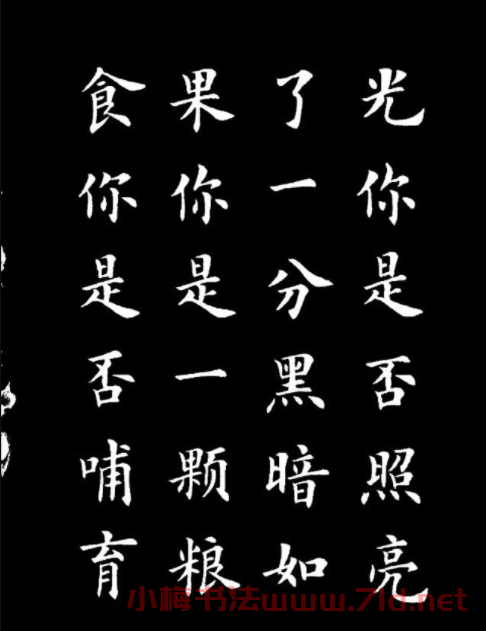 光你是否照亮
了一分黑暗如
果你是一颗粮
食你是否哺育
小梅书法www.71d.net